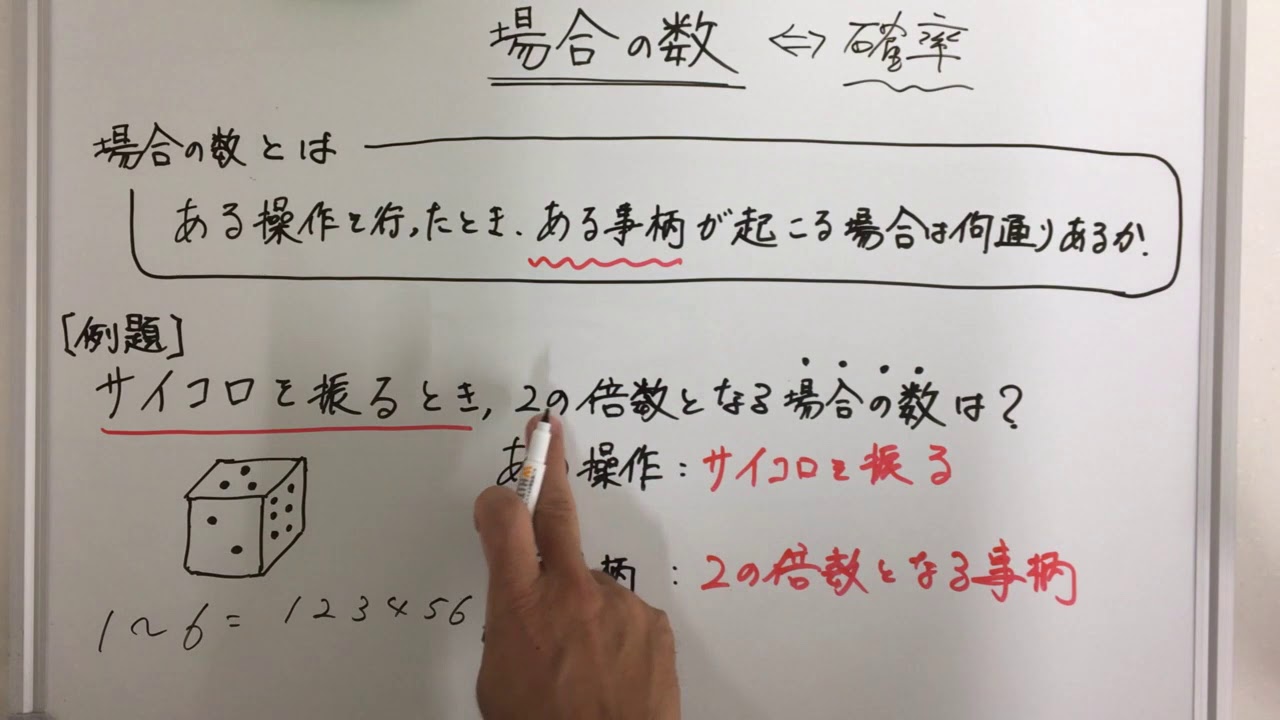 場合の数 ⇔ 確率
場合の数とは
ある操作を行ったとき、ある事柄が起こる場合は何通りあるか.
[例題]
サイコロを振るとき, 2の倍数となる場合の数は?
あ 操作: サイコロを振る
柄 : 2の倍数となる事柄
1~6= 1 2 3 4 5 6